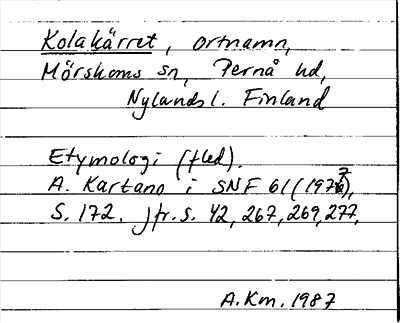 Kolakärret, ortnamn,
Mörskoms sn, Pernå hd,
Nylands l. Finland
Etymologi (fled).
A. Kartano i SNF 61 (1977),
S. 172. Jfr. s. 42, 267, 269, 277,
A.Km. 1987